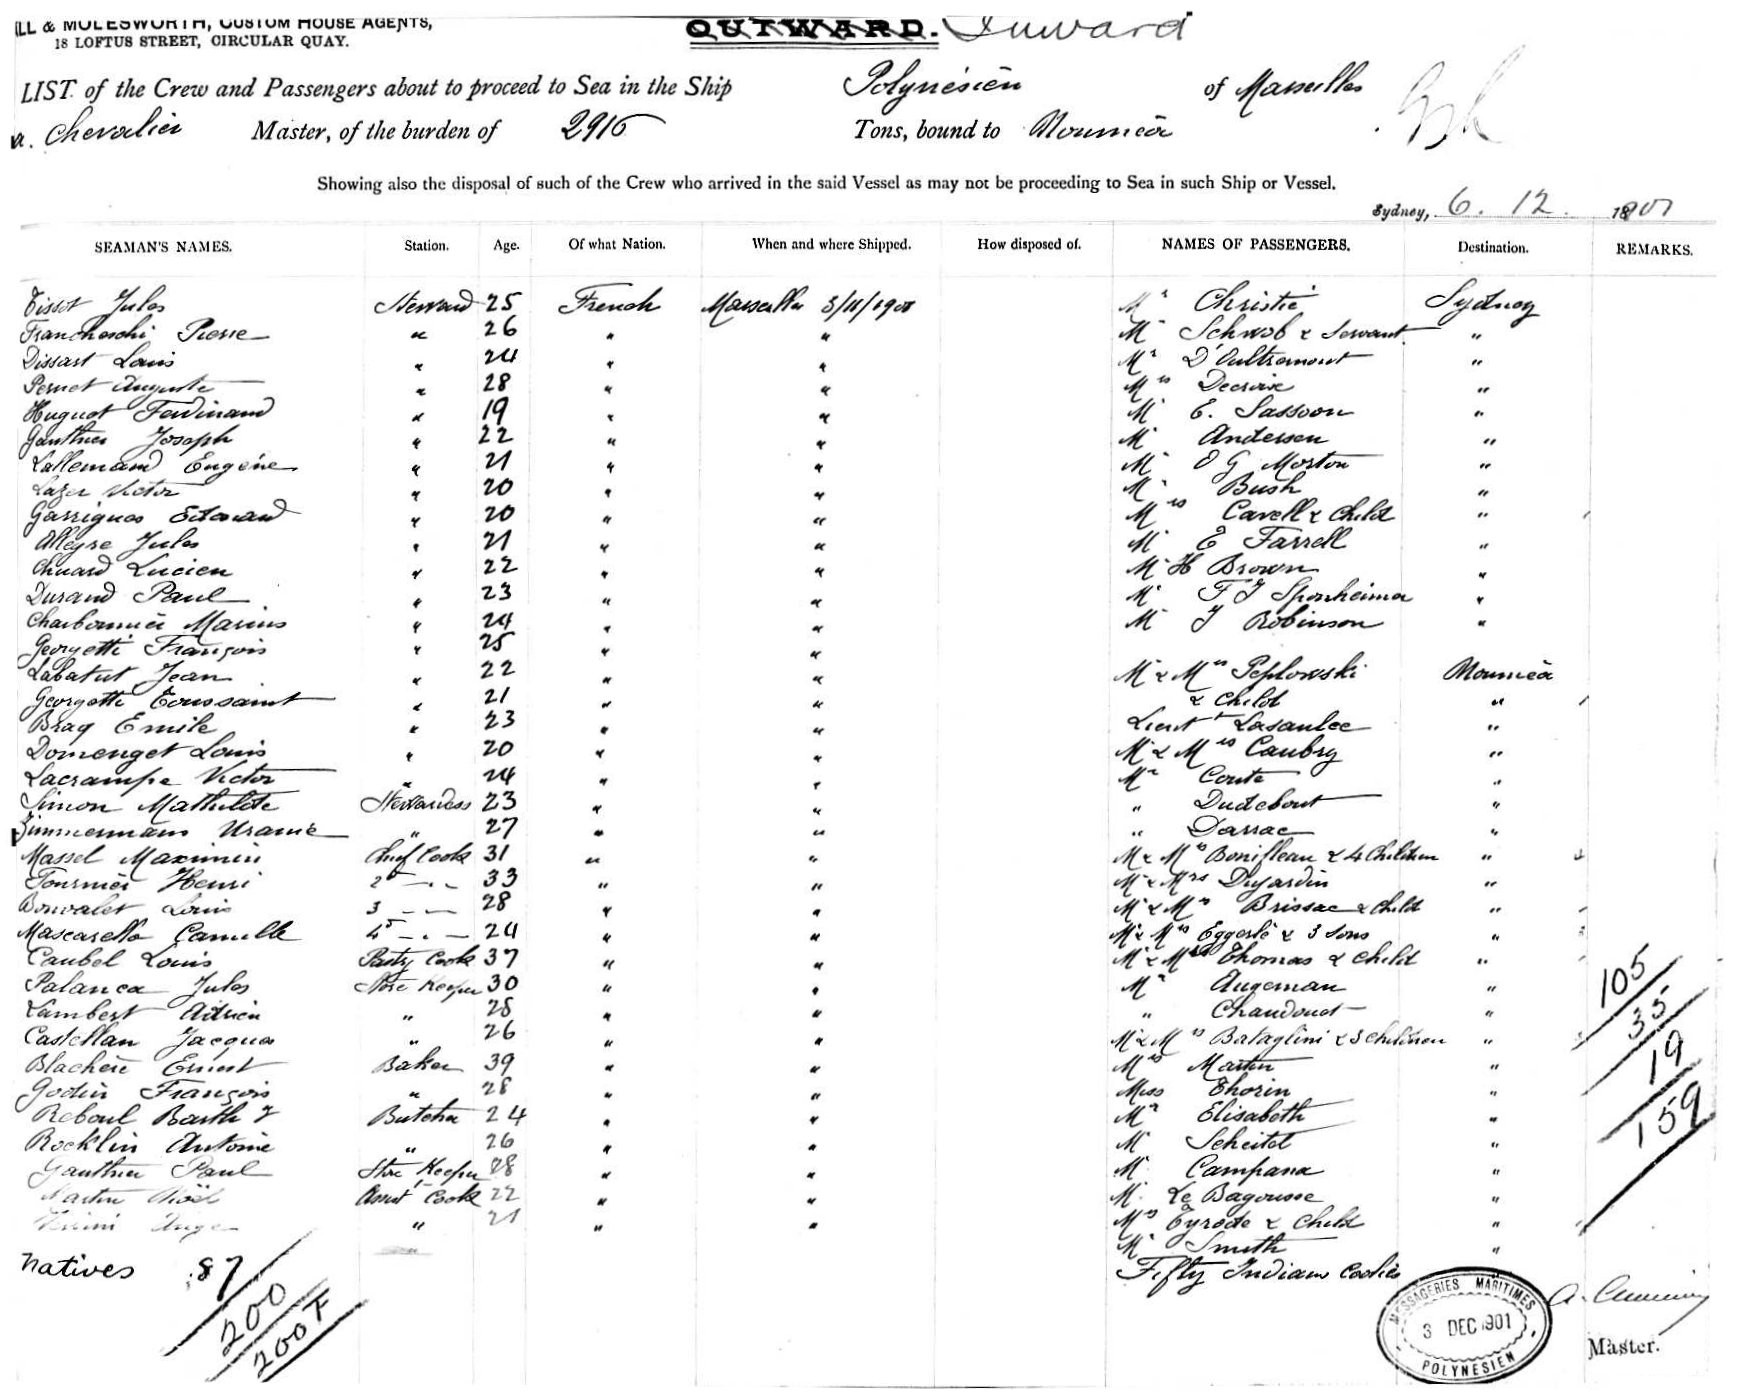 ILL & MOLESWORTH, CUSTOM HOUSE AGENTS,
18 LOFTUS STREET, CIRCULAR QUAY.
OUTWARD. Inward
LIST of the Crew and Passengers about to proceed to Sea in the Ship Polynésien of Marseilles
a. Chevalier Master, of the burden of 2916 Tons, bound to Nouméa
Showing also the disposal of such of the Crew who arrived in the said Vessel as may not be proceeding to Sea in such Ship or Vessel.
Sydney, 6. 12. 1901
SEAMAN'S NAMES. Station. Age. Of what Nation. When and where Shipped. How disposed of. NAMES OF PASSENGERS. Destination. REMARKS.
Tissot Jules Steward 25 French Marseilles 3/11/1901 Mr Christie Sydney
Francheschi Pierre " 26 " " Mr Schwob & Servant "
Dissart Louis " 24 " " Mr D'Oultremont "
Pernet Auguste " 28 " " Mrs Decroix "
Huguet Ferdinand " 19 " " Mr E. Sassoon "
Gauthier Joseph " 22 " " Mr Andersen "
Lallemand Eugène " 21 " " Mr O G Morton "
Lazer Victor " 20 " " Mr Bush "
Garrigues Edouard " 20 " " Mrs Cavell & Child "
Allègre Jules " 21 " " Mr E Farrell "
Chuard Lucien " 22 " " Mr H Brown "
Durand Paul " 23 " " Mr F J Sponheimer "
Charbonnier Marius " 24 " " Mr J Robinson "
Georgetti François " 25 " "
Labatut Jean " 22 " " Mr & Mrs Peplowski Nouméa
Georgetti Toussaint " 21 " " & Child "
Braq Emile " 23 " " Lieutt Lasaulce "
Domenget Louis " 20 " " Mr & Mrs Caubry "
Lacrampe Victor " 24 " " Mr Conte "
Simon Mathilde Stewardess 23 " " " Dudebout "
Zimmermann Uranie " 27 " " " Darrac "
Massel Maximin Chief Cook 31 " " Mr & Mrs Bonifleau & 4 Children "
Fournier Henri 2 " 33 " " Mr & Mrs Dujardin "
Bonvalet Louis 3 " 28 " " Mr & Mrs Brissac & Child "
Mascarello Camille 4 " 24 " " Mr & Mrs Eggerlé & 3 Sons "
Caubel Louis Pastry Cook 37 " " Mr & Mrs Thomas & Child "
Palanca Jules Store Keeper 30 " " Mr Augeman "
Lambert Adrien " 28 " " " Chaudouet "
Castellan Jacques " 26 " " Mr & Mrs Bataglini & 3 Children "
Blachère Ernest Baker 39 " " Mrs Martin "
Godin François " 28 " " Miss Thorin "
Reboul Barth J Butcher 24 " " Mr Elisabeth "
Rocklin Antoine " 26 " " Mr Scheitel "
Gauthier Paul Store Keeper 28 " " Mr Campana "
Martin Noël Asst Cook 22 " " Mr Le Bagousse "
Ange " 21 " " Mrs Eyrode & Child "
Mr Smith "
Natives 87 Fifty Indians Coolies
200
200 F
105
35
19
159
MESSAGERIES MARITIMES
3 DEC 1901
POLYNESIEN
Master.